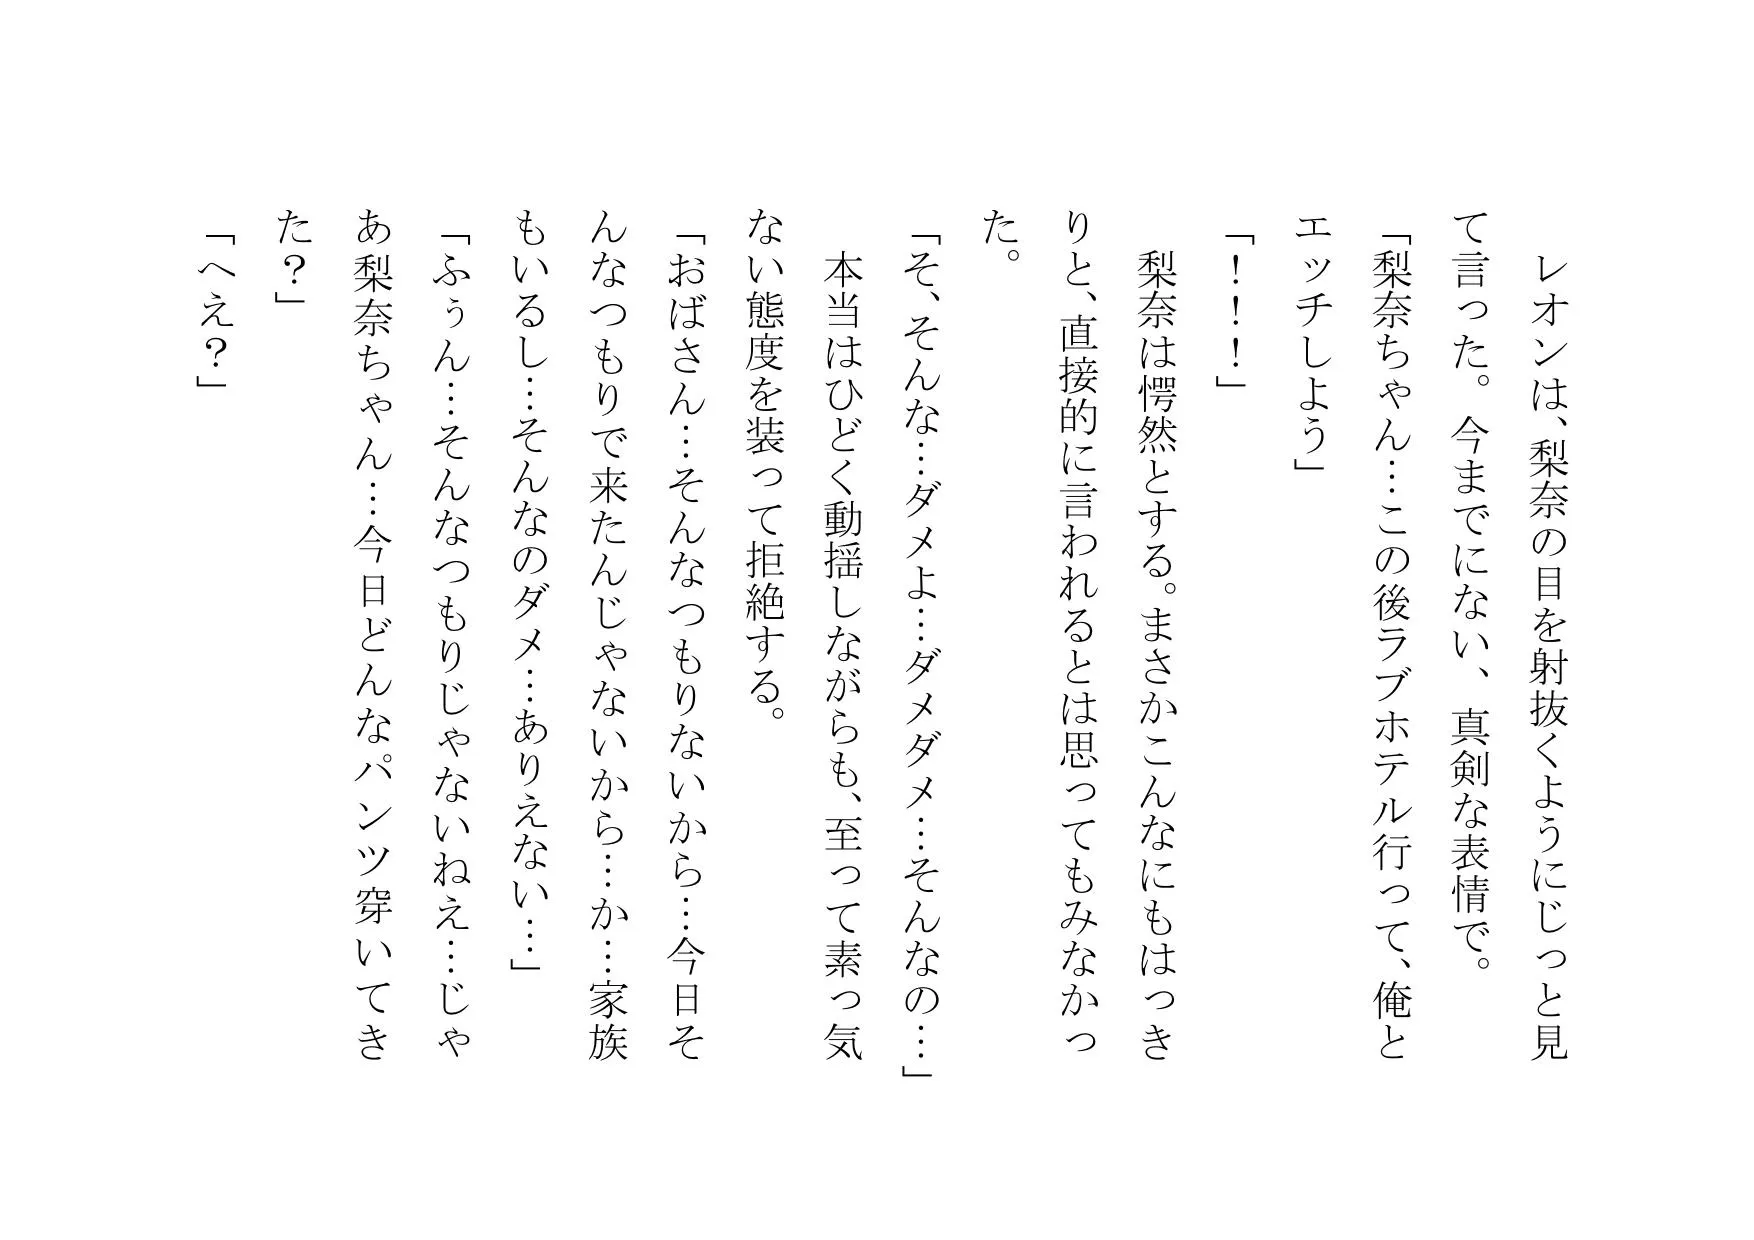 レオンは、梨奈の目を射抜くようにじっと見
て言った。今までにない、真剣な表情で。
「梨奈ちゃん…この後ラブホテル行って、俺と
エッチしよう」
「！！！」
梨奈は愕然とする。まさかこんなにもはっき
りと、直接的に言われるとは思ってもみなかっ
た。
「そ、そんな…ダメよ…ダメダメ…そんなの…」
本当はひどく動揺しながらも、至って素っ気
ない態度を装って拒絶する。
「おばさん…そんなつもりないから…今日そ
んなつもりで来たんじゃないから…か…家族
もいるし…そんなのダメ…ありえない…」
「ふぅん…そんなつもりじゃないねえ…じゃ
あ梨奈ちゃん…今日どんなパンツ穿いてき
た？」
「へえ？」